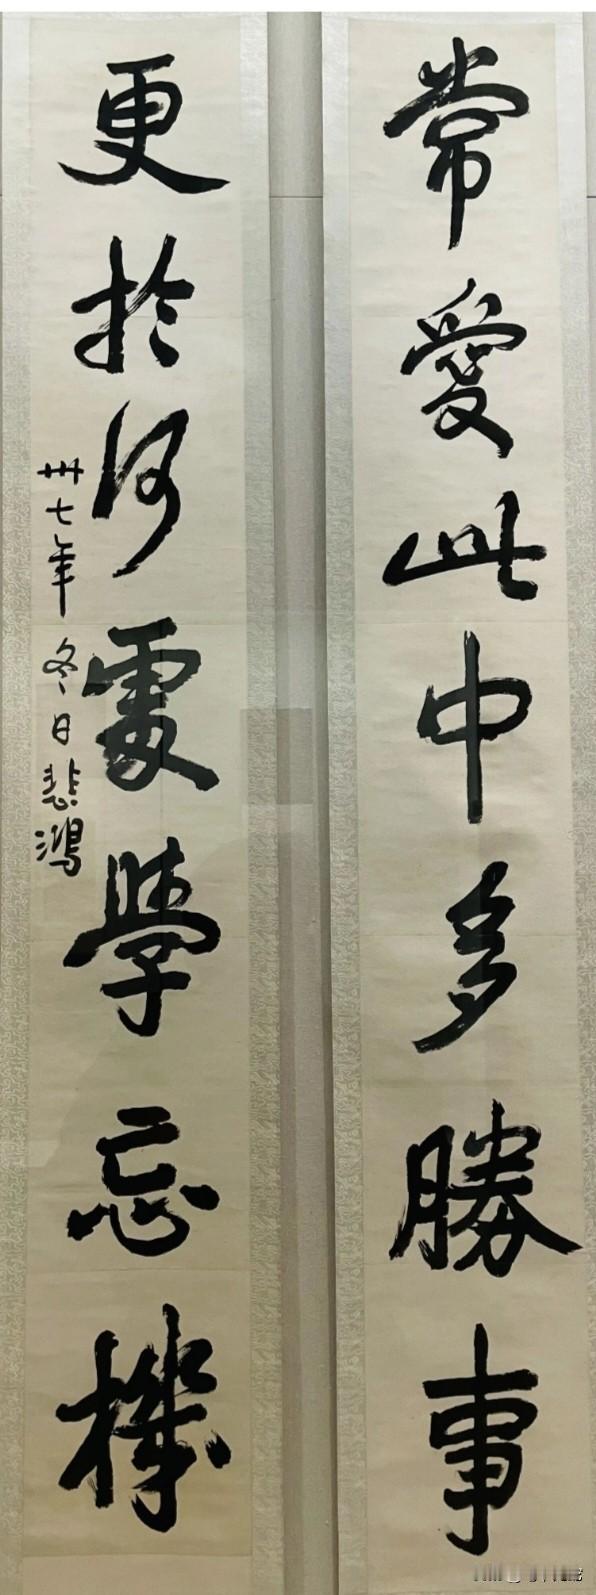 常愛此中多勝事
更於何處學忘機
卅七年冬日悲鴻